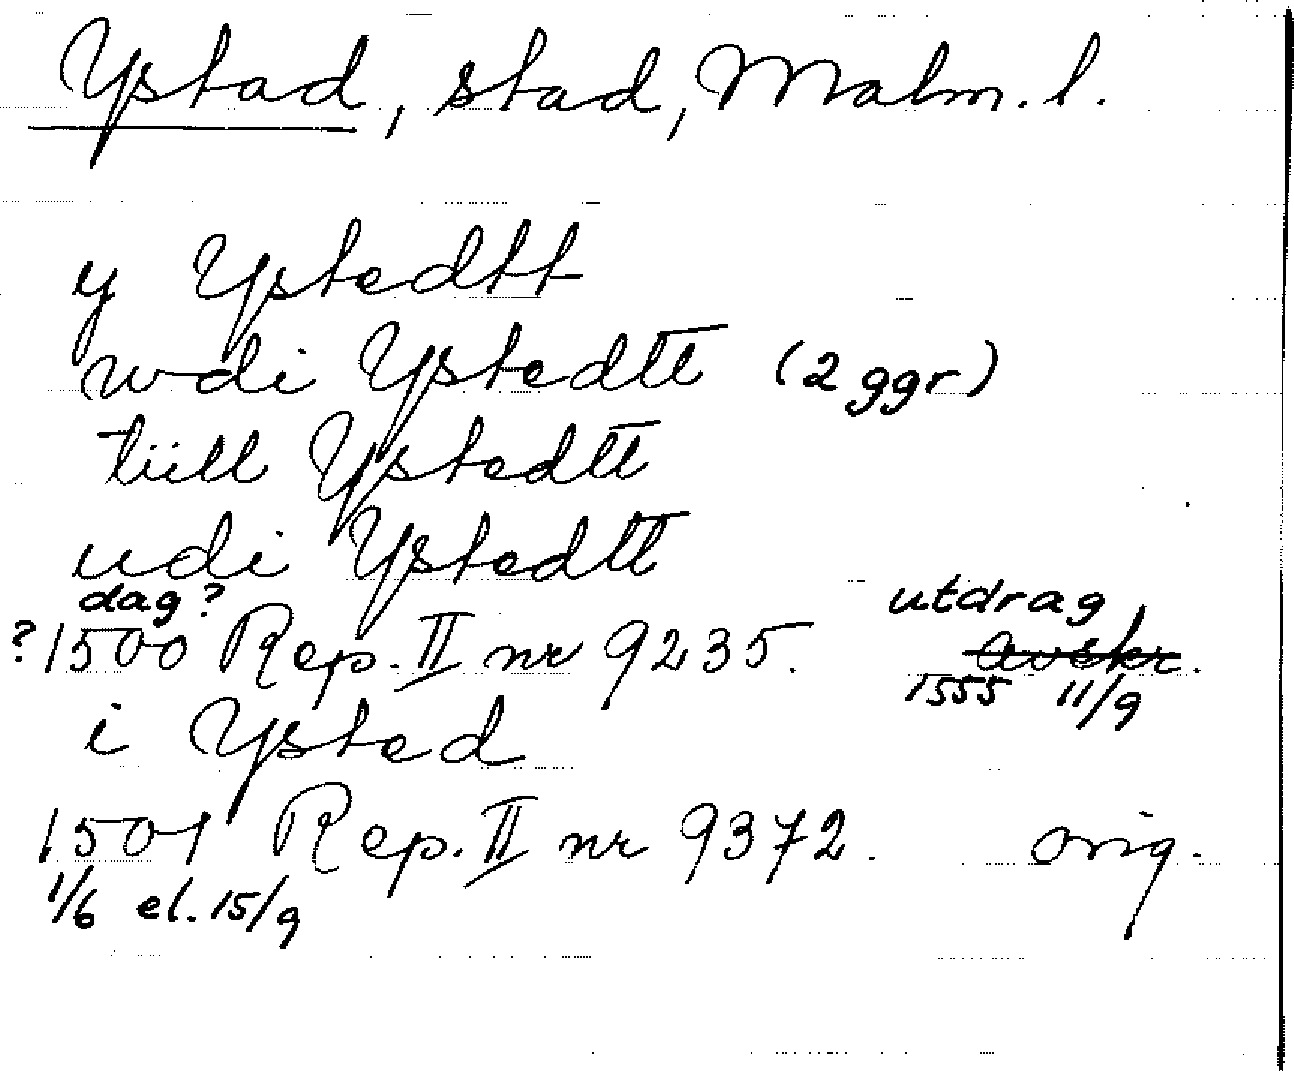 Ystad, stad, Malm. l.
y Ystedtt
wdi Ystedtt (2 ggr)
tiill Ystedtt
udi Ystedtt
dag? utdrag
?1500 Rep. II nr 9235. Avskr.
1555 11/9
i Ysted
1501 Rep. II nr 9372. orig.
1/6 el. 15/9